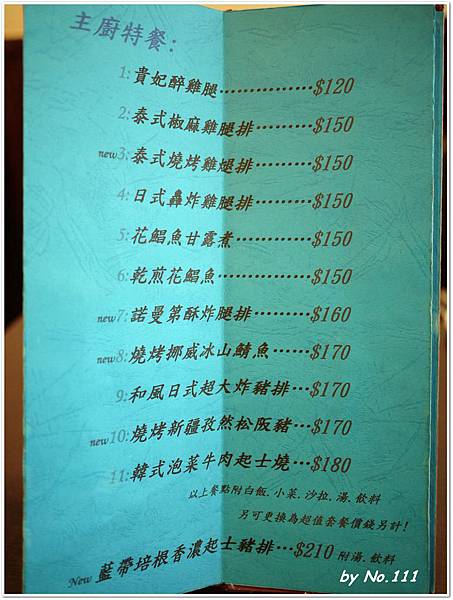 主廚特餐:
1:貴妃醉雞腿……………$120
2:泰式椒麻雞腿排………$150
new3:泰式燒烤雞腿排………$150
4:日式轟炸雞腿排………$150
5:花鯧魚甘露煮…………$150
6:乾煎花鯧魚……………$150
new7:諾曼第酥炸腿排………$160
new8:燒烤挪威冰山鯖魚……$170
9:和風日式超大炸豬排…$170
new10:燒烤新疆孜然松阪豬…$170
11:韓式泡菜牛肉起士燒…$180
以上餐點附白飯.小菜.沙拉.湯.飲料
另可更換為超值套餐價錢另計!
New 藍帶培根香濃起士豬排…$210 附湯.飲料
by No.111